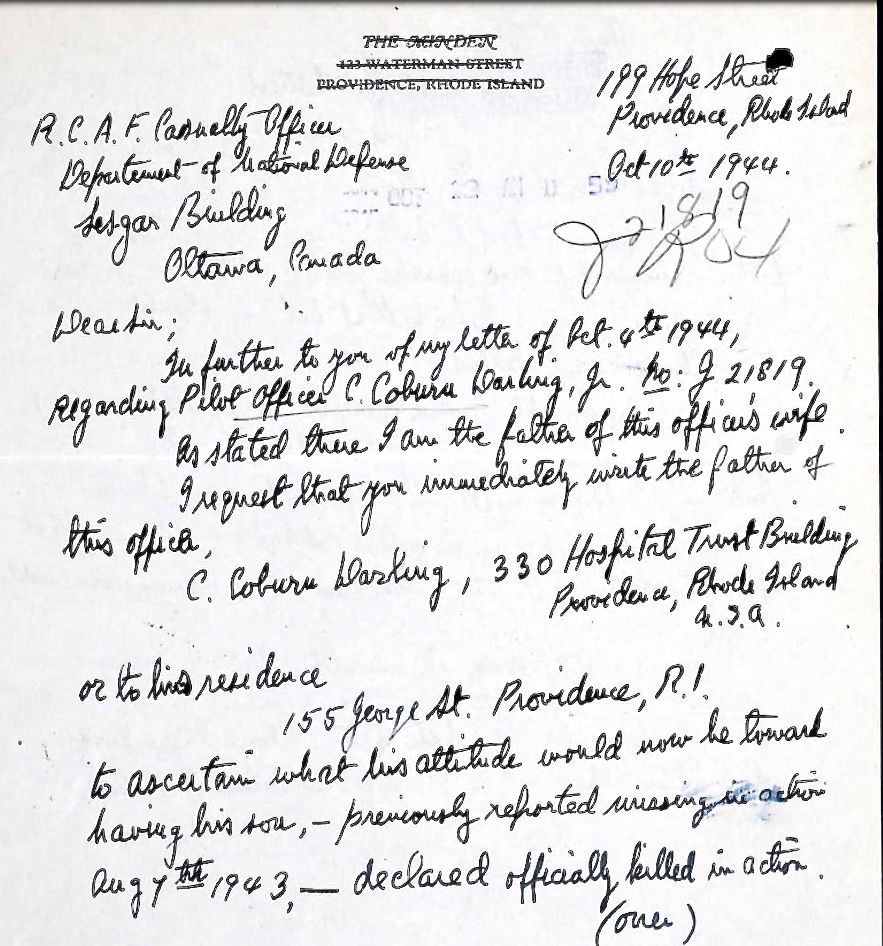 THE MINDEN
123 WATERMAN STREET
PROVIDENCE, RHODE ISLAND
199 Hope Street
Providence, Rhode Island
Oct 10th 1944.
R.C.A.F. Casualty Officer
Departement of National Defense
Lesgar Building
Ottawa, Canada
OCT 12 AM 11 59
J 21819
Dear Sir;
In further to you of my letter of Oct. 4th 1944,
regarding Pilot Officer C. Coburn Darling, Jr. No: J 21819.
As stated there I am the father of this officer's wife.
I request that you immediately write the father of
this officer,
C. Coburn Darling, 330 Hospital Trust Building
Providence, Rhode Island
U.S.A.
or to his residence
155 George St. Providence, R.I.
to ascertain what his attitude would now be toward
having his son, – previously reported missing in action
Aug 7th 1943, — declared officially killed in action.
(over)